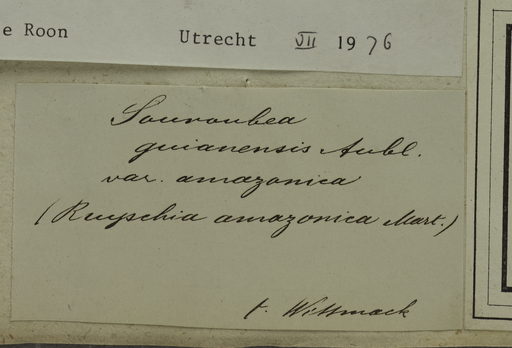 e Roon Utrecht VII 1976
Souroubea
guianensis Aubl.
var. amazonica
(Ruyschia amazonica Mart.)
t. Wittmack